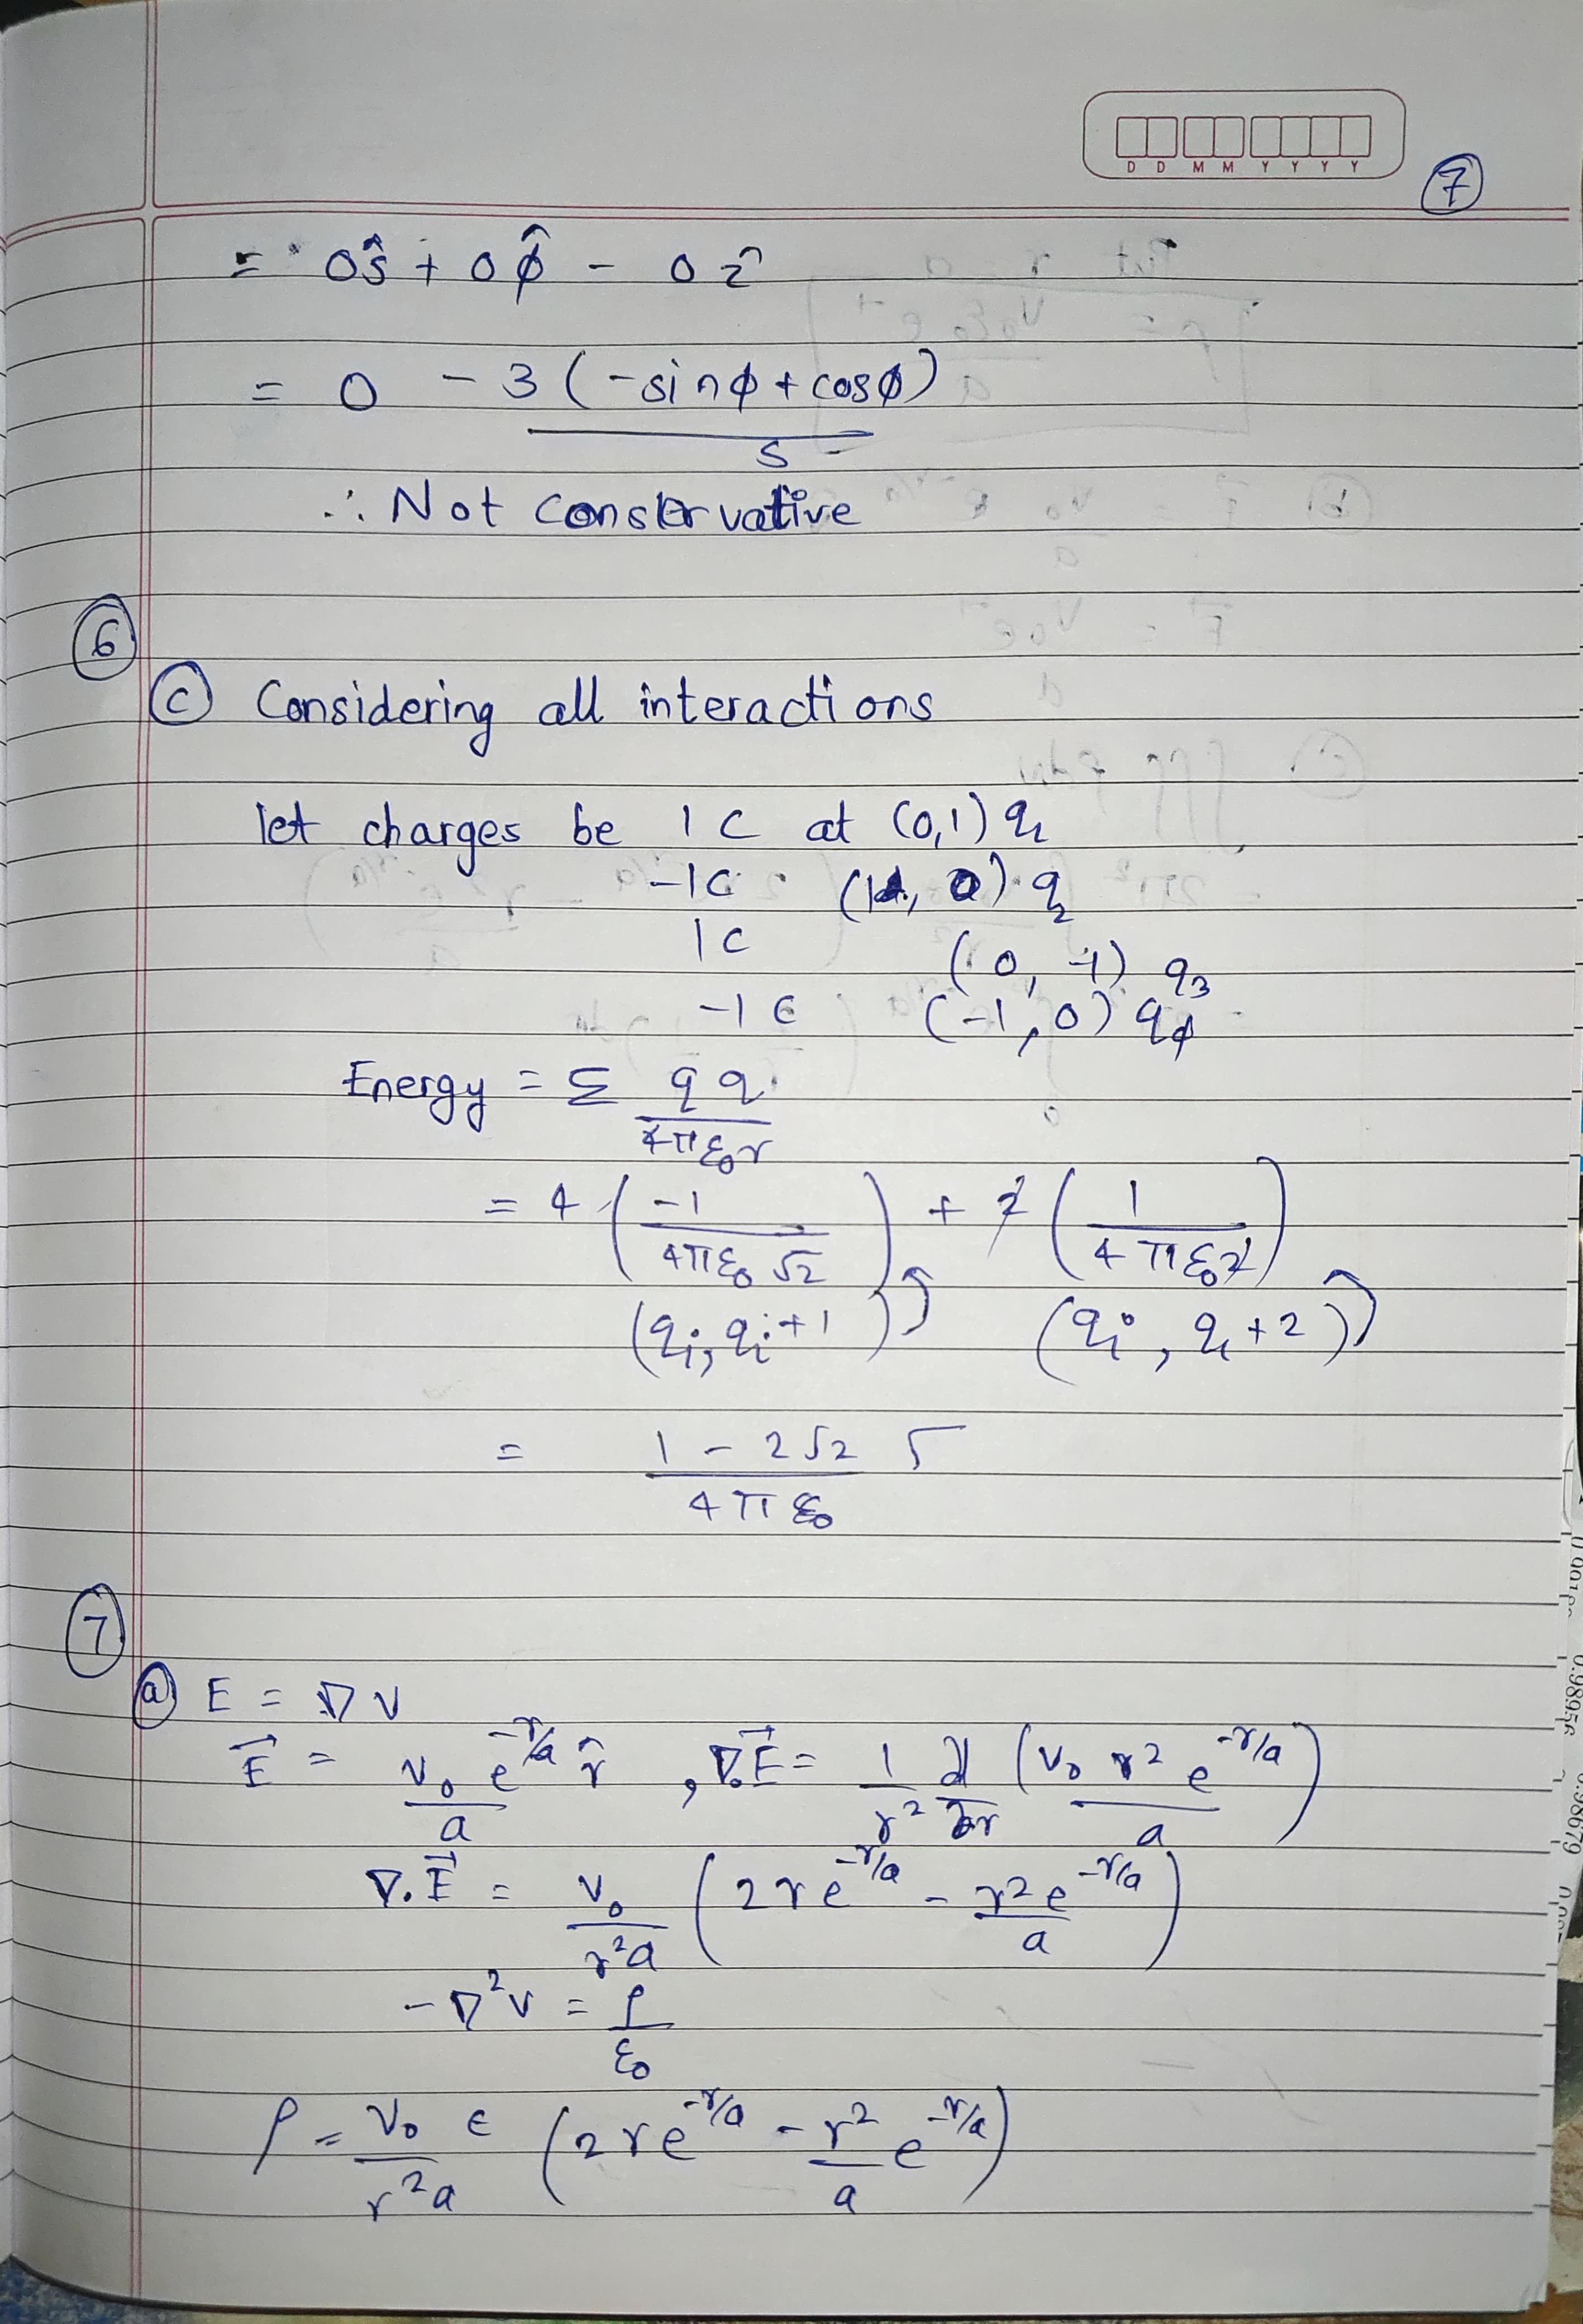 D D M M Y Y Y Y
7
= 0ŝ + 0φ̂ - 0ẑ
= 0 - 3(-sinφ + cosφ)
s
∴ Not conservative
6
c Considering all interactions
let charges be 1 C at (0,1) q1
-1C (1, 0) q2
1C
(0, -1) q3
-1C (-1, 0) q4
Energy = Σ q q
4πε0r
= 4 ( -1 / 4πε0 √2 ) + 2 ( 1 / 4πε0 2 )
(qi, qi+1) (qi, qi+2)
= 1 - 2√2 J
4πε0
7
a E = ∇V
E⃗ = V0/a e^(-r/a) r̂ , ∇.E⃗ = 1/r² ∂/∂r (V0 r² e^(-r/a) / a)
∇.E⃗ = V0/r²a (2re^(-r/a) - r²e^(-r/a) / a)
-∇²V = ρ/ε0
ρ = V0 ε / r²a (2re^(-r/a) - r²/a e^(-r/a))